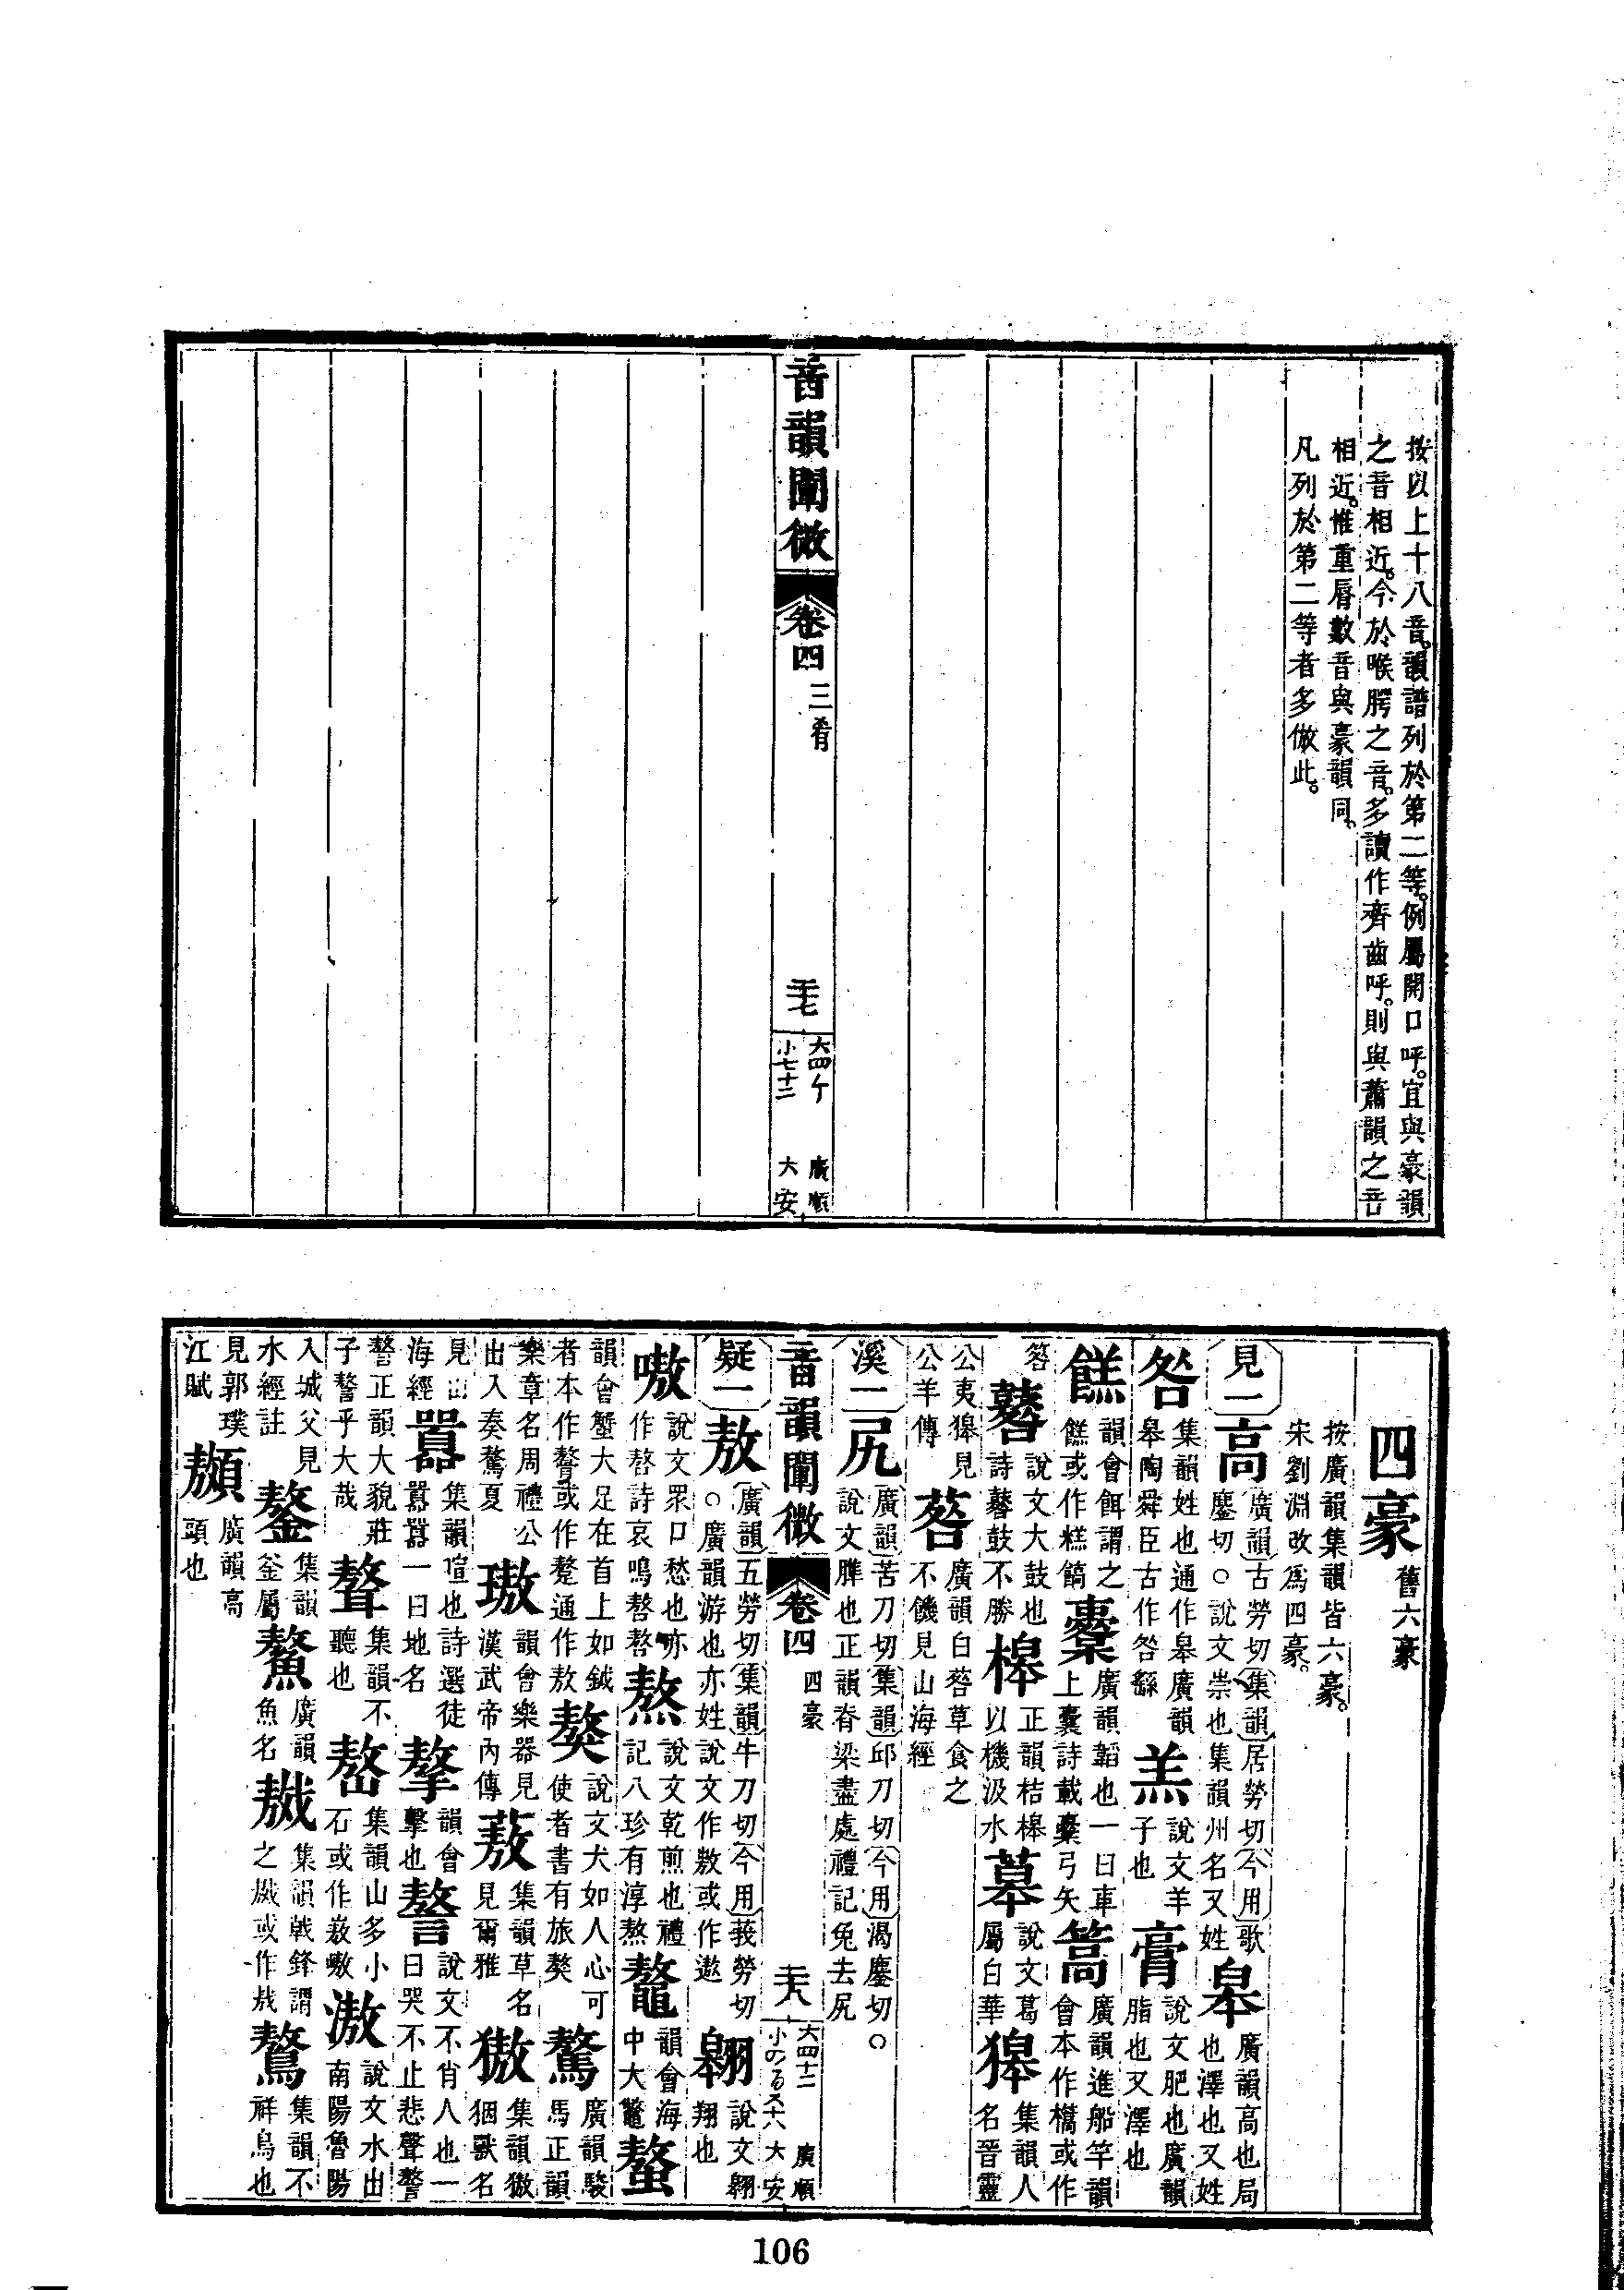 按以上十八音。韻譜列於第二等。例屬開口呼。宜與豪韻
之音相近。今於喉腭之音。多讀作齊齒呼。則與蕭韻之音
相近。惟重脣數音與豪韻同。
凡列於第二等者多倣此。
音韻闡微 卷四 三肴 三十七 大四个 小七十二 廣順 大安
四豪 舊六豪
按廣韻集韻皆六豪。
宋劉淵改爲四豪。
見一 高 廣韻古勞切集韻居勞切今用歌
鏖切○說文崇也集韻州名又姓 皋 廣韻高也局
也澤也又姓
咎 集韻姓也通作皋廣韻
皋陶舜臣古作咎繇 羔 說文羊
子也 膏 說文肥也廣韻
脂也又澤也
餻 韻會餌謂之
餻或作糕篙 櫜 廣韻韜也一曰車
上囊詩載櫜弓矢 篙 廣韻進船竿韻
會本作檇或作
䈞 鼛 說文大鼓也
詩鼛鼓不勝 槔 正韻桔槔
以機汲水 䓘 說文葛
屬白華 獋 集韻人
名晉靈
公夷獋見
公羊傳 䓘 廣韻白䓘草食之
不饑見山海經
溪一 尻 廣韻苦刀切集韻邱刀切今用渴鏖切○
說文脽也正韻脊梁盡處禮記兔去尻
音韻闡微 卷四 四豪 三十八 大四十二 廣順 大安
疑一 敖 廣韻五勞切集韻牛刀切今用莪勞切
○廣韻游也亦姓說文作敖或作遨 翱 說文翱
翔也
嗷 說文眾口愁也亦
作嗸詩哀鳴嗸嗸 熬 說文乾煎也禮
記八珍有淳熬 鼇 韻會海
中大鼈 螯
韻會蟹大足在首上如鉞
者本作䥝或作䠂通作敖 獒 說文犬如人心可
使者書有旅獒 驁 廣韻駿
馬正韻
樂章名周禮公
出入奏驁夏 璈 韻會樂器見
漢武帝內傳 蔜 集韻草名
見爾雅 獓 集韻獓
𤞞獸名
見山
海經 囂 集韻喧也詩選徒
囂囂一曰地名 摮 韻會
擊也 謷 說文不肖人也一
曰哭不止悲聲謷
謷正韻大貌莊
子謷乎大哉 聱 集韻不
聽也 嶅 集韻山多小
石或作嶅嗷 滶 說文水出
南陽魯陽
入城父見
水經註 鏊 集韻
釜屬 鰲 廣韻
魚名 𢧴 集韻戟鋒謂
之𢧴或作𢦏 鷔 集韻不
祥鳥也
見郭璞
江賦 䫨 廣韻高
頭也
106